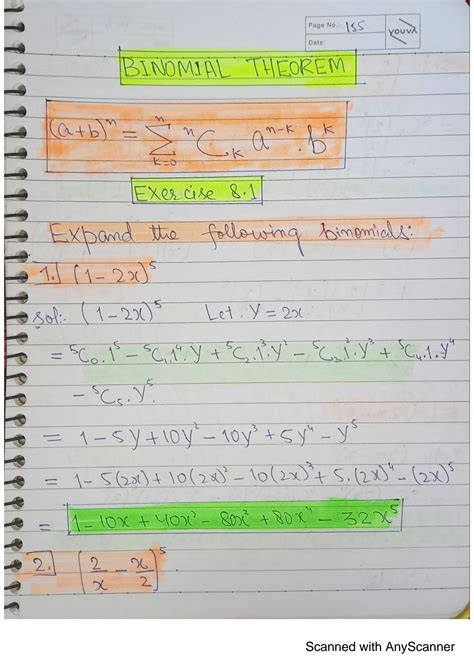 Page No.: 155
YOUVA
Date:
BINOMIAL THEOREM
(a+b)ⁿ = ∑ₖ₌₀ⁿ ⁿCₖ aⁿ⁻ᵏ . bᵏ
Exercise 8.1
Expand the following binomials:
1.] (1-2x)⁵
Sol:. (1-2x)⁵ Let Y = 2x.
= ⁵C₀.1⁵ - ⁵C₁.1⁴.y + ⁵C₂.1³.y² - ⁵C₃.1².y³ + ⁵C₄.1.y⁴
- ⁵C₅.y⁵.
= 1-5y+10y²-10y³+5y⁴-y⁵
= 1-5(2x)+10(2x)²-10(2x)³+5.(2x)⁴-(2x)⁵
= 1-10x+40x²-80x³+80x⁴-32x⁵
2.] (2/x - x/2)⁵.
Scanned with AnyScanner